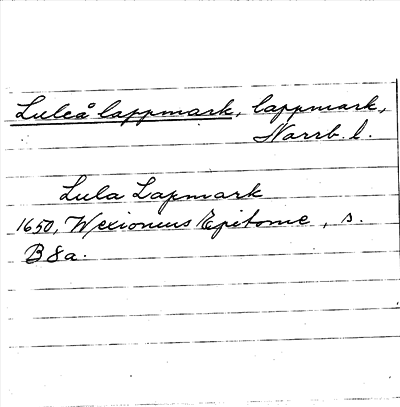 Luleå lappmark, lappmark,
Norrb. l.
Lula Lapmark
1650, Wexionius Epitome, s.
B8a.